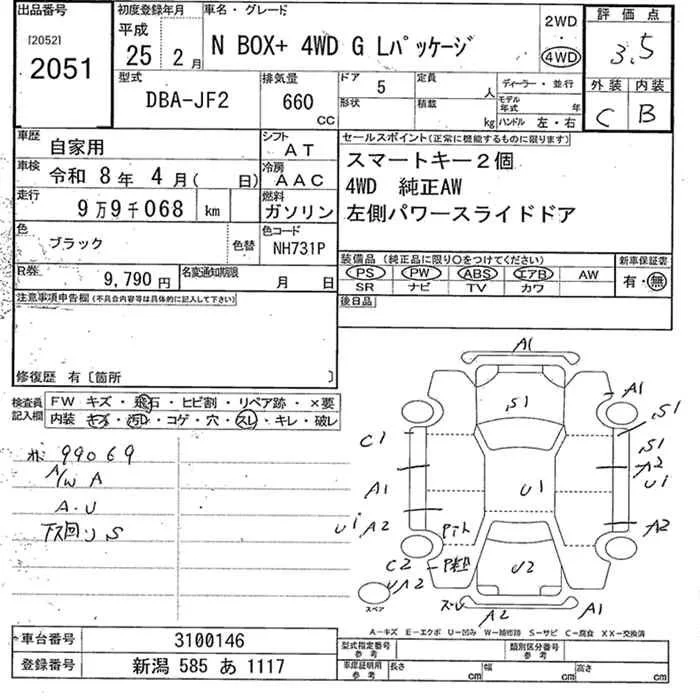 出品番号
[2052]
2051
初度登録年月
平成
25 2月
車名・グレード
N BOX+ 4WD G Lパッケージ
2WD
・
4WD
評価点
3.5
外装 内装
C B
型式
DBA-JF2
排気量
660
CC
ドア
5
形状
定員
人
積載
kg
ディーラー・並行
モデル年式
年
ハンドル 左・右
車歴
自家用
シフト
AT
車検
令和 8年 4月( 日)
冷房
AAC
走行
9万9千068 km
燃料
ガソリン
色
ブラック
色替
色コード
NH731P
R券
9,790円
名変通知期限
月 日
セールスポイント(正常に機能するものに限ります)
スマートキー2個
4WD 純正AW
左側パワースライドドア
装備品(純正品に限り○をつけてください)
PS PW ABS エアB AW
SR ナビ TV カワ
新車保証書
有・無
後日品
注意事項申告欄(不具合内容等は具体的に記入して下さい)
修復歴 有〔箇所 〕
検査員記入欄
FW キズ・飛石・ヒビ割・リペア跡・×要
内装 キズ・汚レ・コゲ・穴・スレ・キレ・破レ
99069
A/W A
A・U
下回りS
A1
A1
S1
S1
C1
S1
A2
U1
A1
U1
U1 A2
A2
C2
U2
UA2
スペア
A2
A1
A-キズ E-エクボ U-凹ミ W-補修跡 S-サビ C-腐食 XX-交換済
車台番号
3100146
登録番号
新潟 585 あ 1117
型式指定番号
参考
類別区分番号
参考
車庫証明用
参考
長さ
cm
幅
cm
高さ
cm